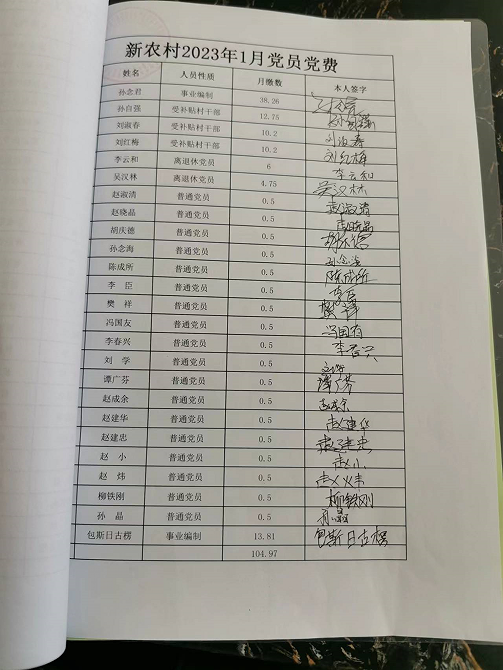 新农村2023年1月党员党费
姓名 人员性质 月缴数 本人签字
孙念君 事业编制 38.26
孙自强 受补贴村干部 12.75 孙自强
刘淑春 受补贴村干部 10.2 刘淑春
刘红梅 受补贴村干部 10.2 刘红梅
李云和 离退休党员 6 李云和
吴汉林 离退休党员 4.75 吴汉林
赵淑清 普通党员 0.5 赵淑清
赵晓晶 普通党员 0.5 赵晓晶
胡庆德 普通党员 0.5 胡庆德
孙念海 普通党员 0.5 孙念海
陈成所 普通党员 0.5 陈成所
李 臣 普通党员 0.5 李臣
樊 祥 普通党员 0.5 樊祥
冯国友 普通党员 0.5 冯国有
李春兴 普通党员 0.5 李春兴
刘 学 普通党员 0.5 刘学
谭广芬 普通党员 0.5 谭广芬
赵成余 普通党员 0.5 赵成余
赵建华 普通党员 0.5 赵建华
赵建忠 普通党员 0.5 赵建忠
赵 小 普通党员 0.5 赵小
赵 炜 普通党员 0.5 赵炜
柳铁刚 普通党员 0.5 柳铁刚
孙 晶 普通党员 0.5 孙晶
包斯日古楞 事业编制 13.81 包斯日古楞
104.97